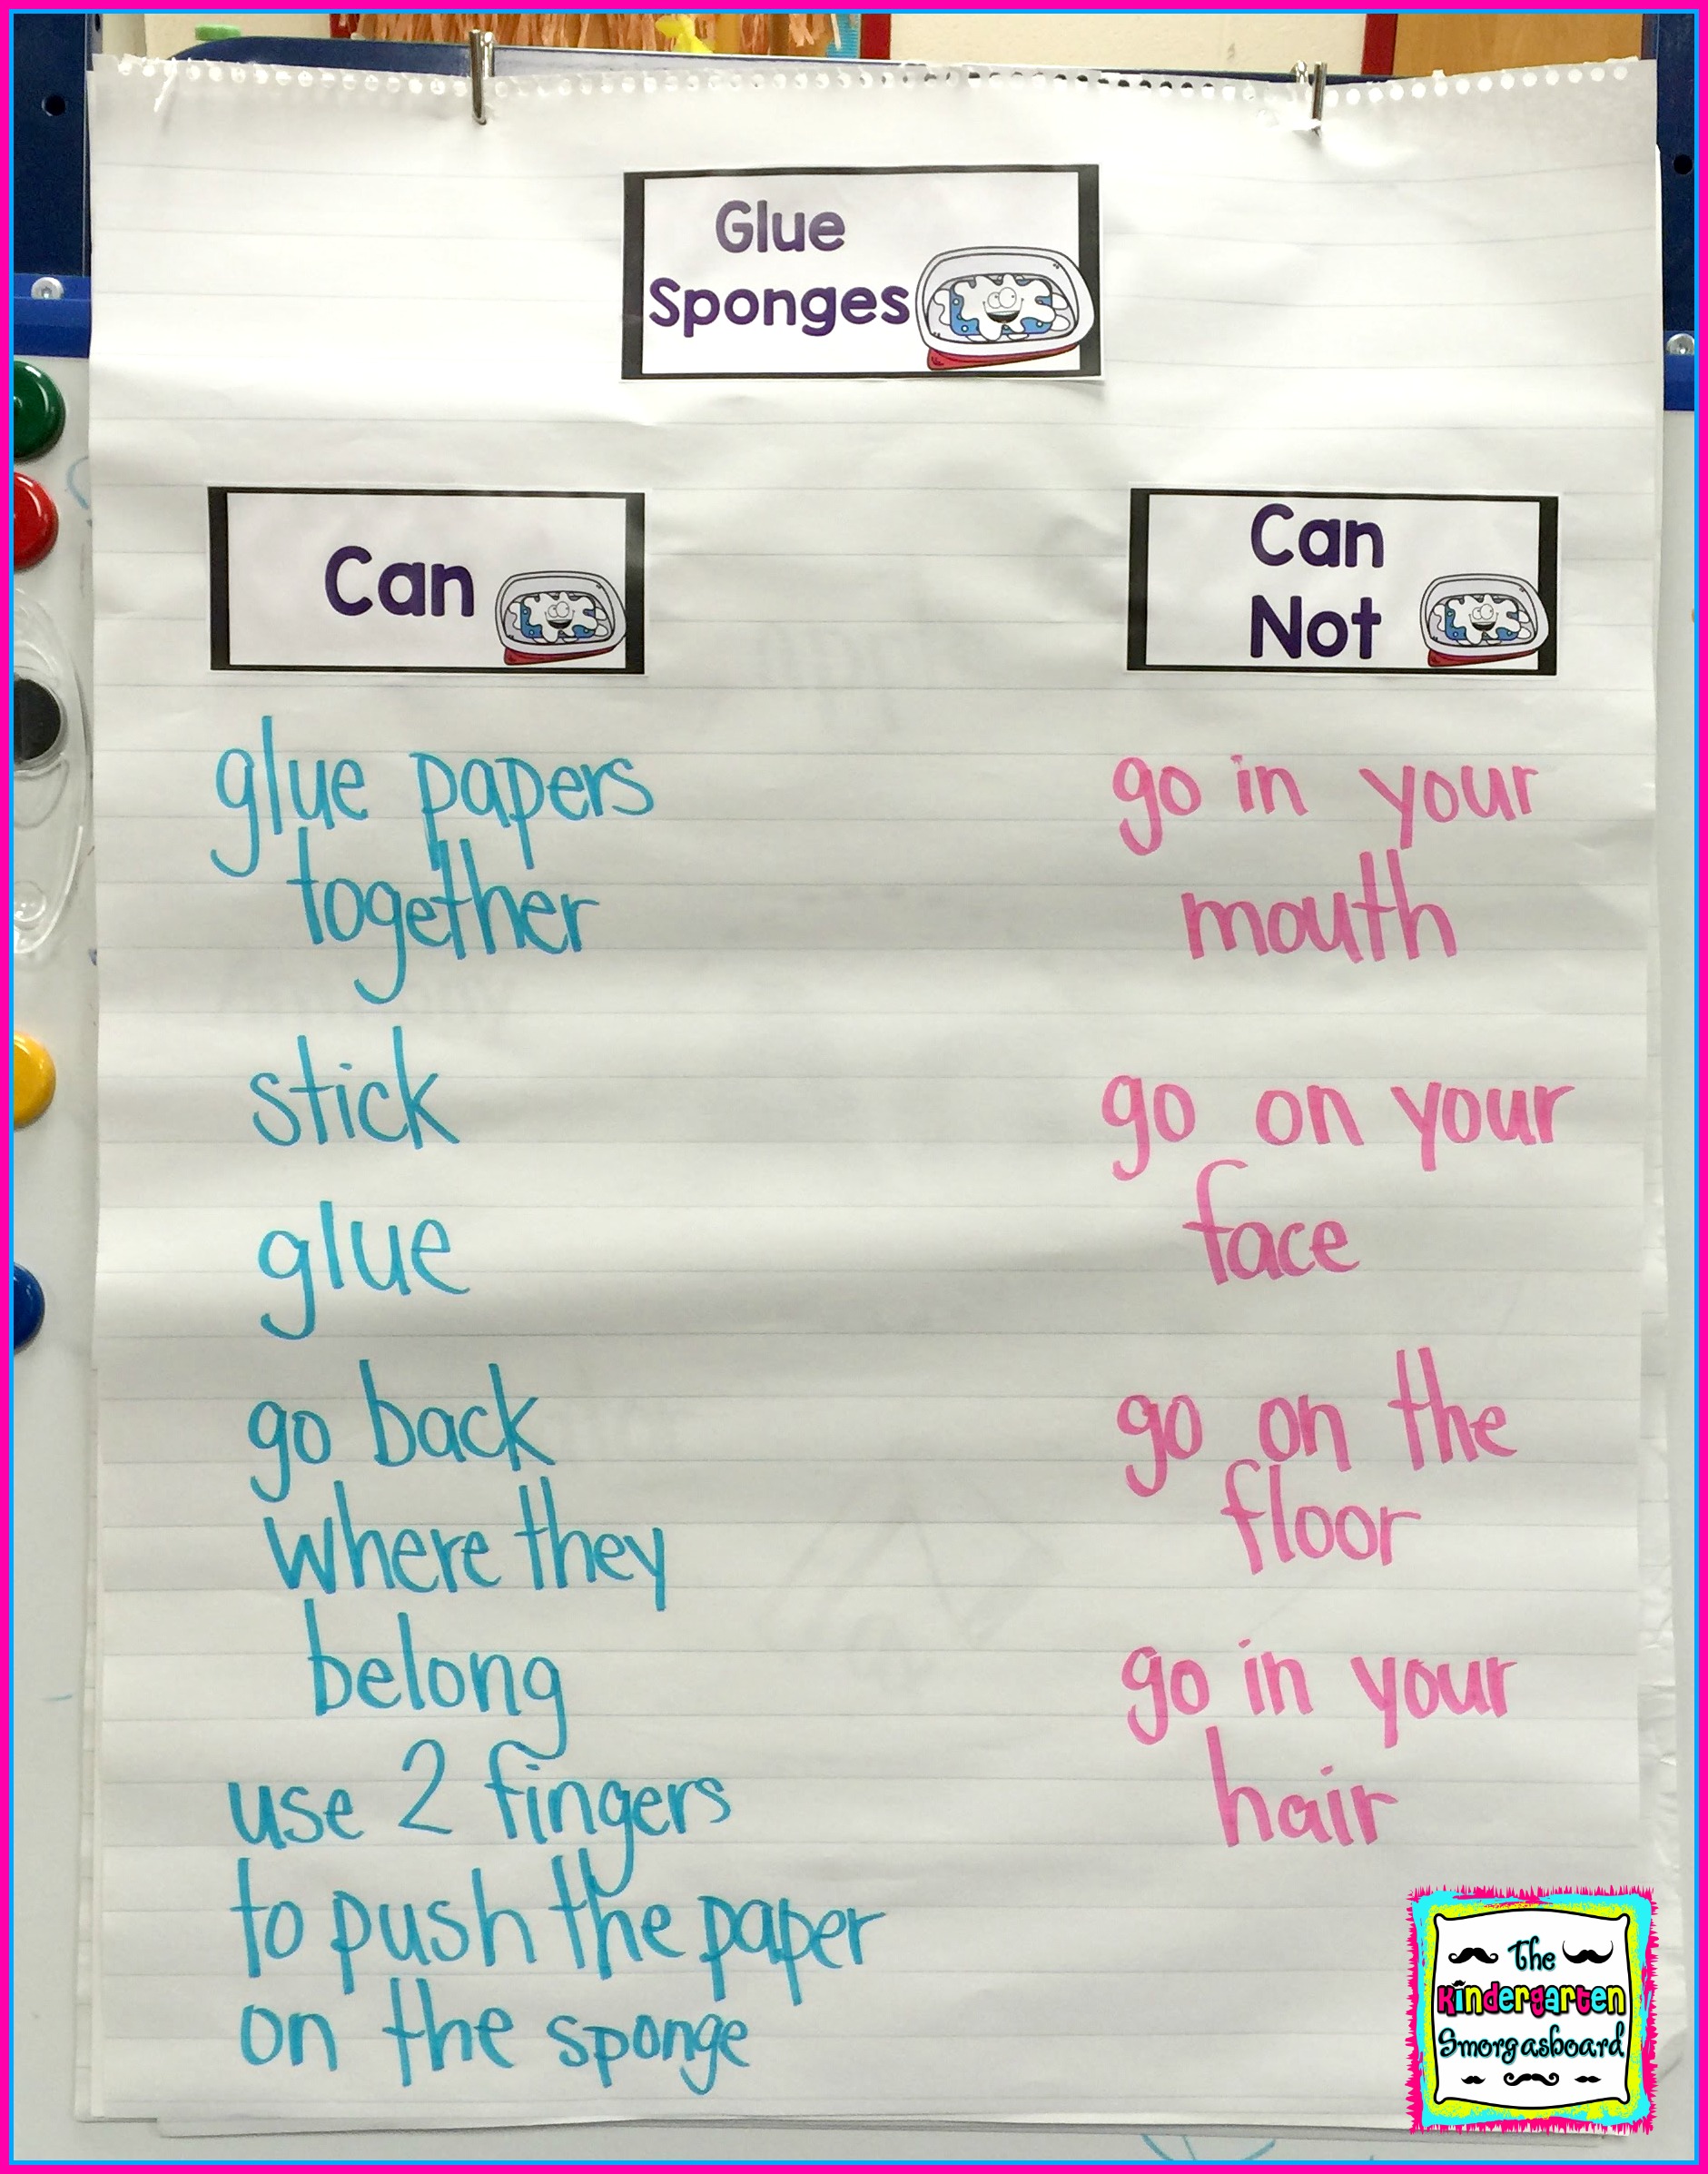 Glue
Sponges
Can
glue papers
together
stick
glue
go back
where they
belong
use 2 fingers
to push the paper
on the sponge
Can
Not
go in your
mouth
go on your
face
go on the
floor
go in your
hair
The
Kindergarten
Smorgasboard